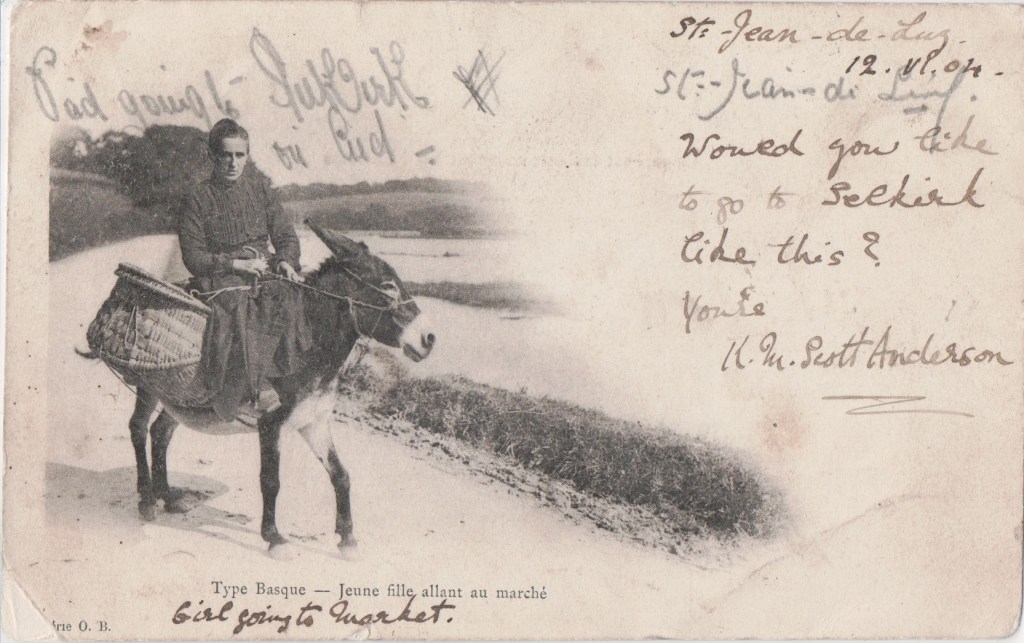 St=-Jean-de-Luz.
12. VI. 04.
St=-Jean-di Luz.
going to Selkirk
on
Would you like
to go to Selkirk
like this?
Yours
K. M. Scott Anderson
Type Basque — Jeune fille allant au marché
Girl going to Market.
rie O. B.